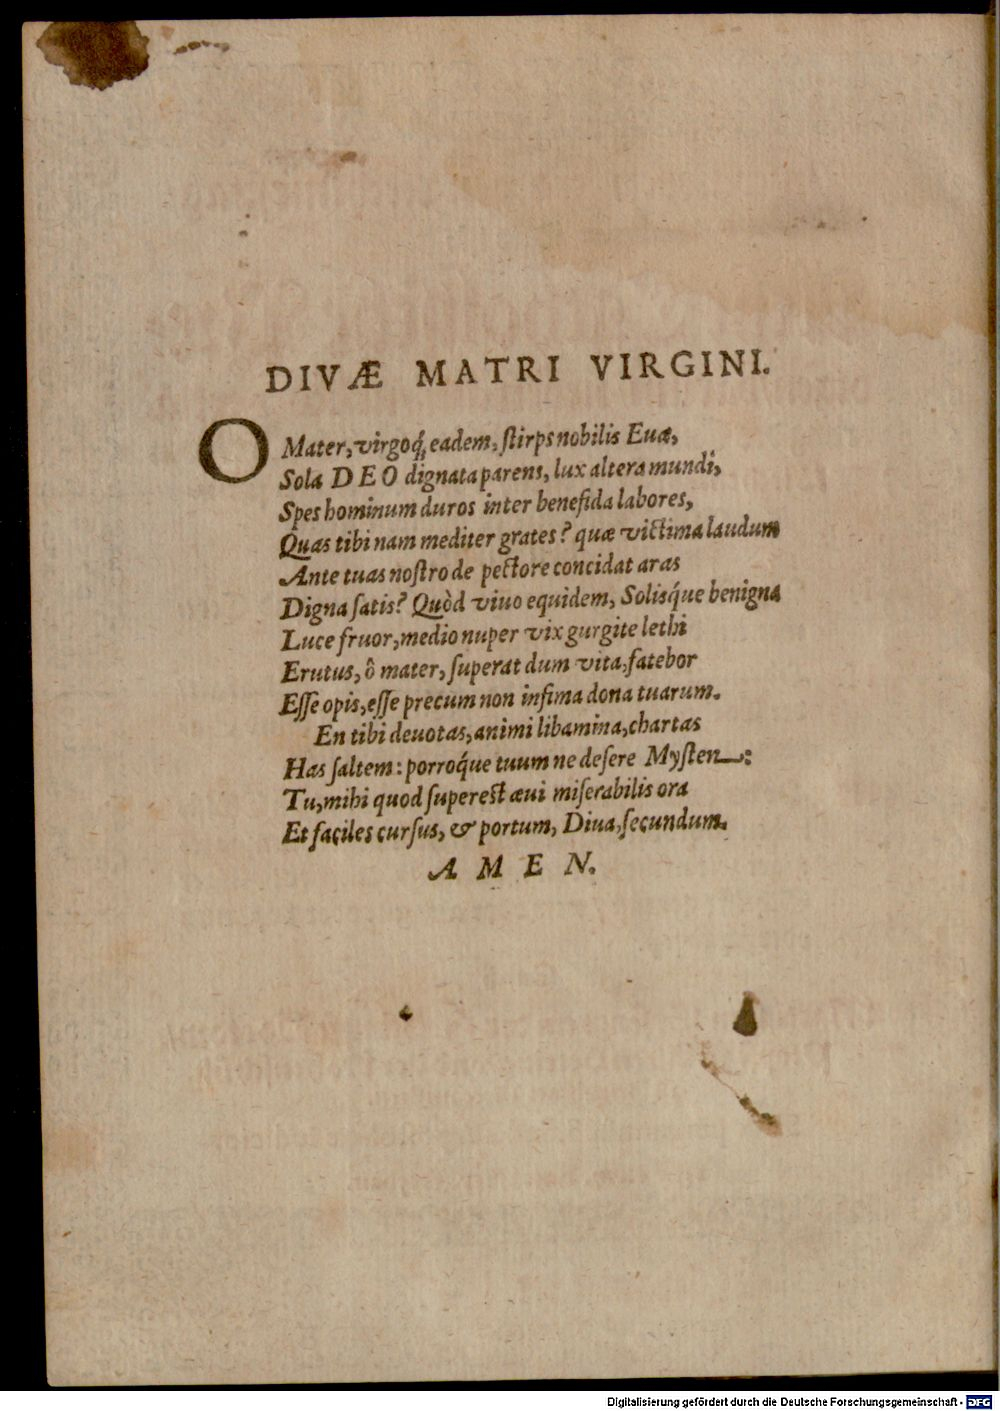 DIVÆ MATRI VIRGINI.
O Mater, virgoq́; eadem, ſtirps nobilis Euæ,
Sola DEO dignata parens, lux altera mundi,
Spes hominum duros inter benefida labores,
Quas tibi nam mediter grates? quæ victima laudum
Ante tuas noſtro de pectore concidat aras
Digna ſatis? Quòd viuo equidem, Solisq́ue benigna
Luce fruor, medio nuper vix gurgite lethi
Erutus, ô mater, ſuperat dum vita, fatebor
Eſſe opis, eſſe precum non infima dona tuarum.
En tibi deuotas, animi libamina, chartas
Has ſaltem: porroq́ue tuum ne deſere Myſten:
Tu, mihi quod ſupereſt æui miſerabilis ora
Et faciles curſus, & portum, Diua, ſecundum.
AMEN.
Digitalisierung gefördert durch die Deutsche Forschungsgemeinschaft - DFG